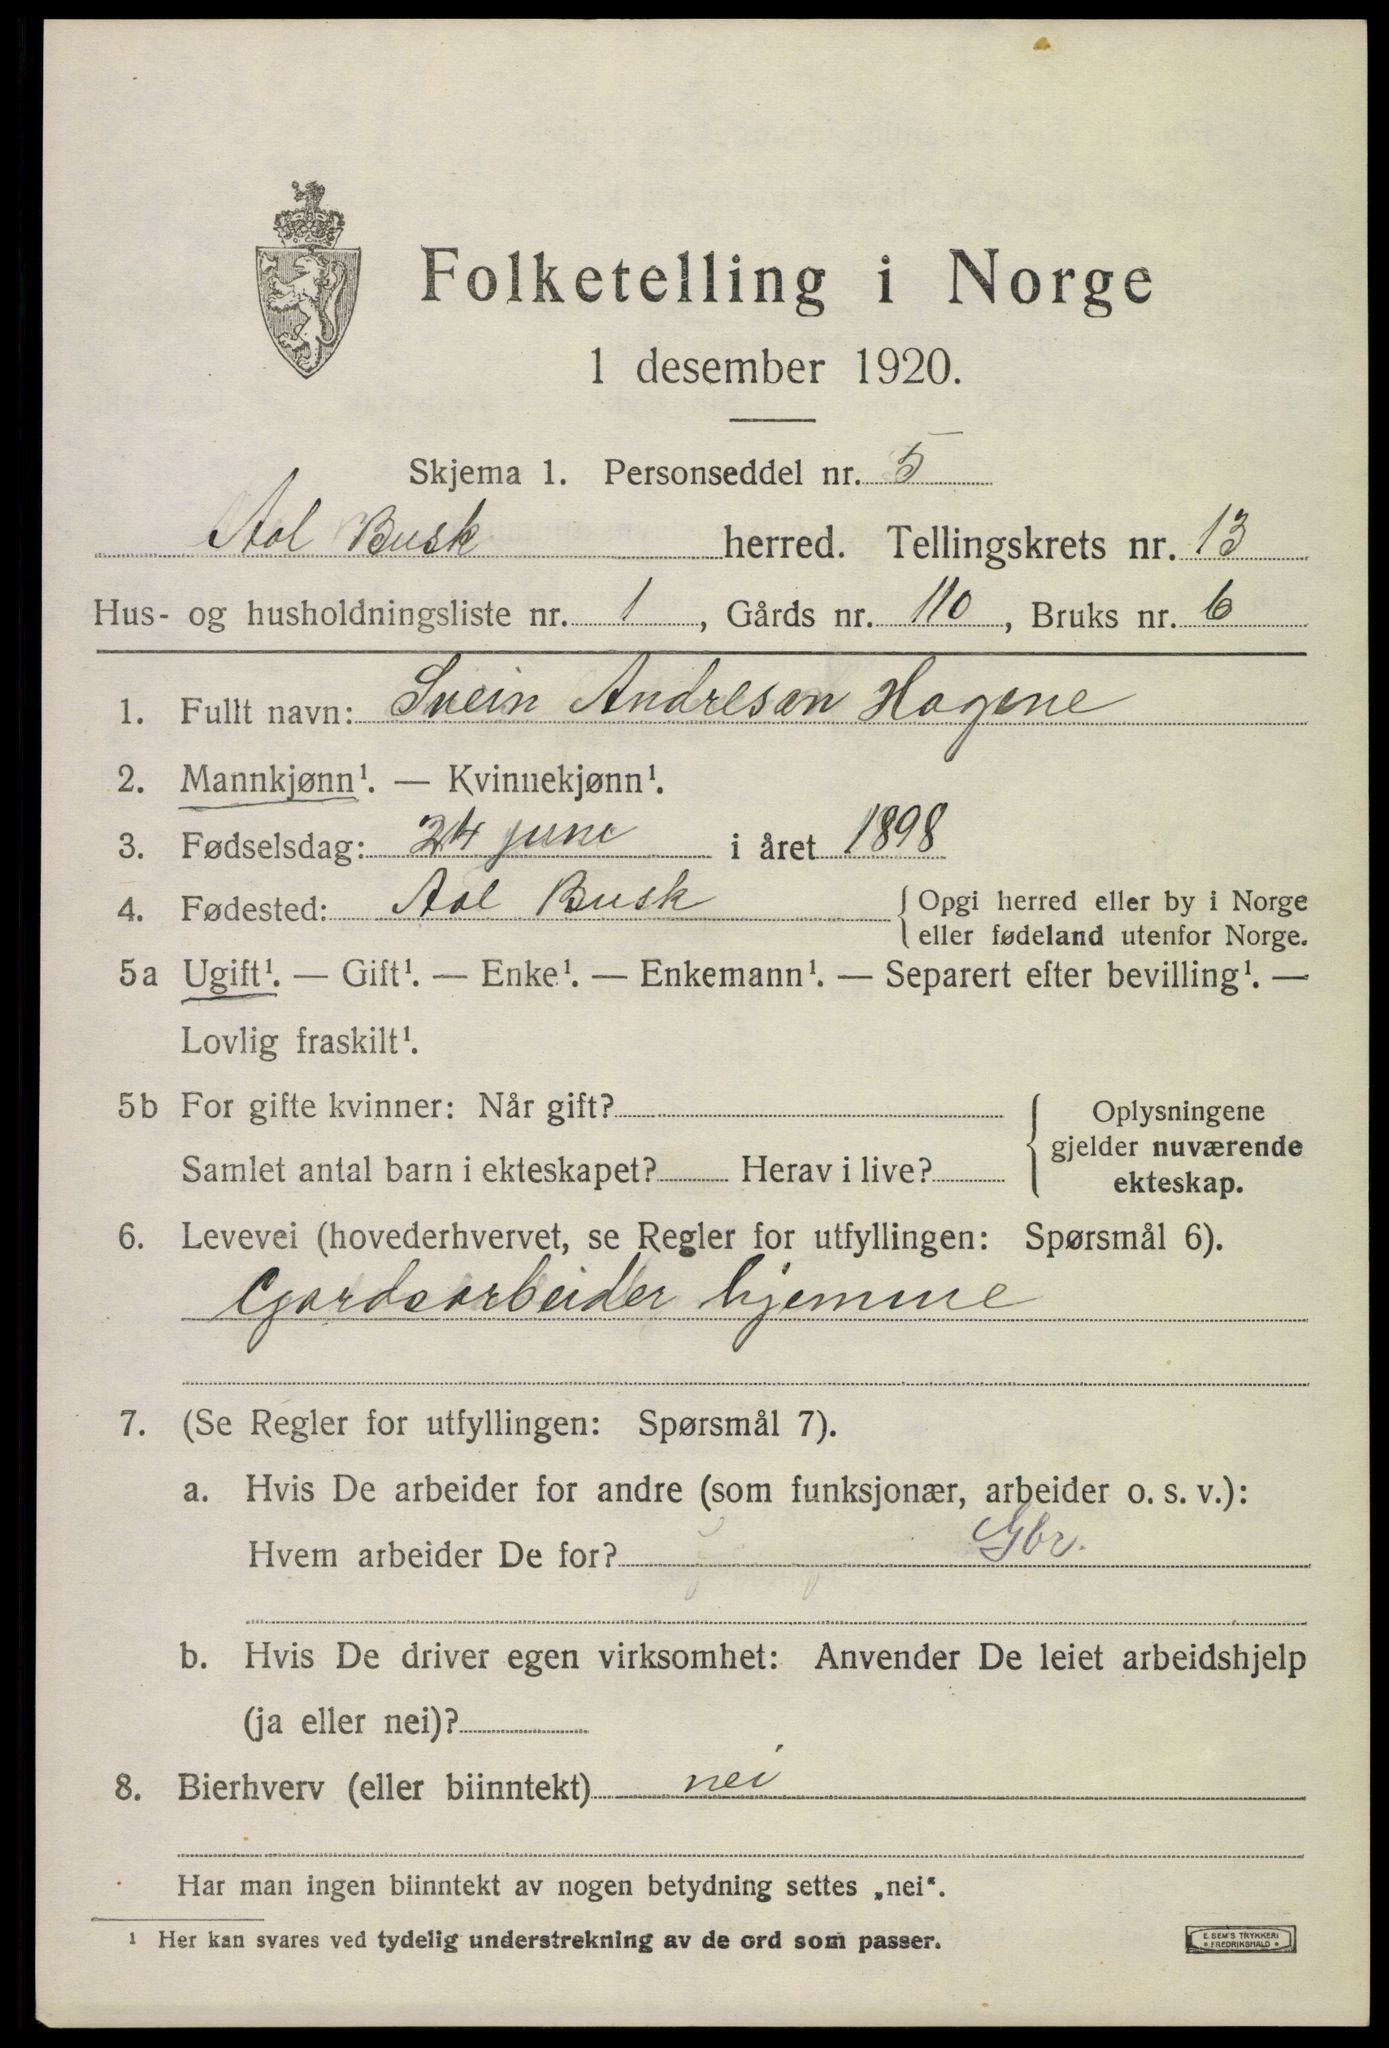 Folketelling i Norge
1 desember 1920.
Skjema 1. Personseddel nr. 5
Aol Busk herred. Tellingskrets nr. 13
Hus- og husholdningsliste nr. 1, Gårds nr. 110, Bruks nr. 6
1. Fullt navn: Svein Andresen Hagene
2. Mannkjønn¹. — Kvinnekjønn¹.
3. Fødselsdag: 24 juni i året 1898
4. Fødested: Aol Busk { Opgi herred eller by i Norge
eller fødeland utenfor Norge.
5a Ugift¹. — Gift¹. — Enke¹. — Enkemann¹. — Separert efter bevilling¹. —
Lovlig fraskilt¹.
5b For gifte kvinner: Når gift?
Samlet antal barn i ekteskapet? Herav i live?
{ Oplysningene
gjelder nuværende
ekteskap.
6. Levevei (hovederhvervet, se Regler for utfyllingen: Spørsmål 6).
Gardsarbeider hjemme
7. (Se Regler for utfyllingen: Spørsmål 7).
a. Hvis De arbeider for andre (som funksjonær, arbeider o. s. v.):
Hvem arbeider De for? Gbr.
b. Hvis De driver egen virksomhet: Anvender De leiet arbeidshjelp
(ja eller nei)?
8. Bierhverv (eller biinntekt) nei
Har man ingen biinntekt av nogen betydning settes „nei“.
¹ Her kan svares ved tydelig understrekning av de ord som passer.
E. SEM'S TRYKKERI
* FREDRIKSHALD *